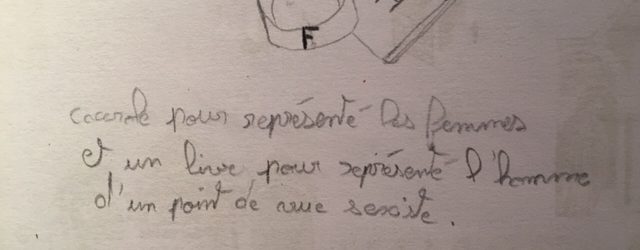 F
cacerole pour représenté les femmes
et un livre pour représenté l'homme
d'un point de vue sexiste.